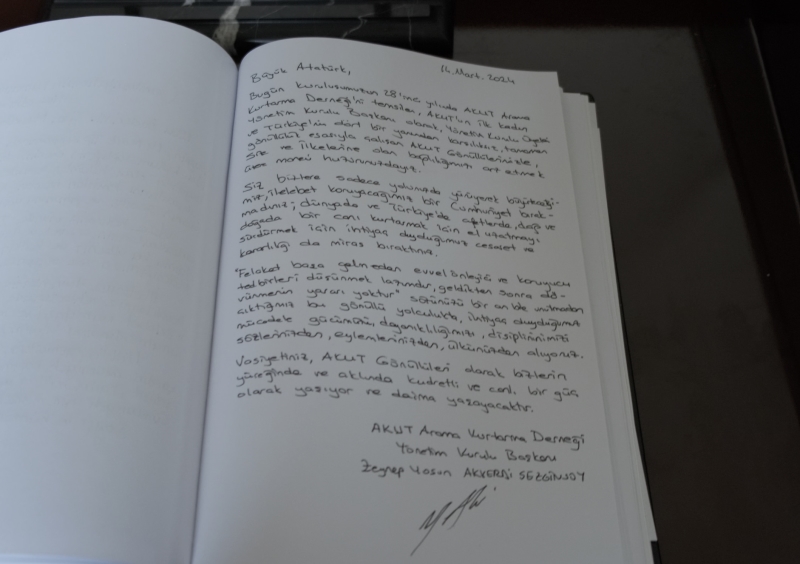 Büyük Atatürk, 14. Mart. 2024
Bugün kuruluşumuzun 28'inci yılında AKUT Arama
Kurtarma Derneği'ni temsilen, AKUT'un ilk kadın
Yönetim Kurulu Başkanı olarak, Yönetim Kurulu Üyeleri
ve Türkiye'nin dört bir yanından karşılıksız, tamamen
gönüllülük esasıyla çalışan AKUT Gönüllülerimizle,
Size ve ilkelerine olan bağlılığımızı arz etmek
üzere manevi huzurunuzdayız.
Siz bizlere sadece yolunuzda yürüyerek büyüteceği-
miz, ilelebet koruyacağımız bir Cumhuriyet bırak-
madınız; dünyada ve Türkiye'de afetlerde, dağda ve
doğada bir canı kurtarmak için el uzatmayı
sürdürmek için ihtiyaç duyduğumuz cesaret ve
kararlılığı da miras bıraktınız.
"Felaket başa gelmeden evvel önleyici ve koruyucu
tedbirleri düşünmek lazımdır, geldikten sonra dö-
vünmenin yararı yoktur" sözünüzü bir an bile unutmadan
çıktığımız bu gönüllü yolculukta, ihtiyaç duyduğumuz
mücadele gücümüzü, dayanıklılığımızı, disiplinimizi
sözlerinizden, eylemlerinizden, ülkünüzden alıyoruz.
Vasiyetiniz, AKUT Gönüllüleri olarak bizlerin
yüreğinde ve aklında kudretli ve canlı bir güç
olarak yaşıyor ve daima yaşayacaktır.
AKUT Arama Kurtarma Derneği
Yönetim Kurulu Başkanı
Zeynep Yosun AKVERDİ SEZGİNSOY